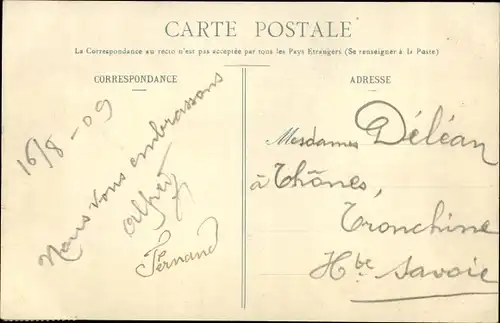 CARTE POSTALE
La Correspondance au recto n'est pas acceptée par tous les Pays Etrangers (Se renseigner à la Poste)
CORRESPONDANCE
16/8-09
Nous vous embrassons
Alfred
Fernand
ADRESSE
Mesdames Déléan
à Thônes,
Tronchine
Hte Savoie